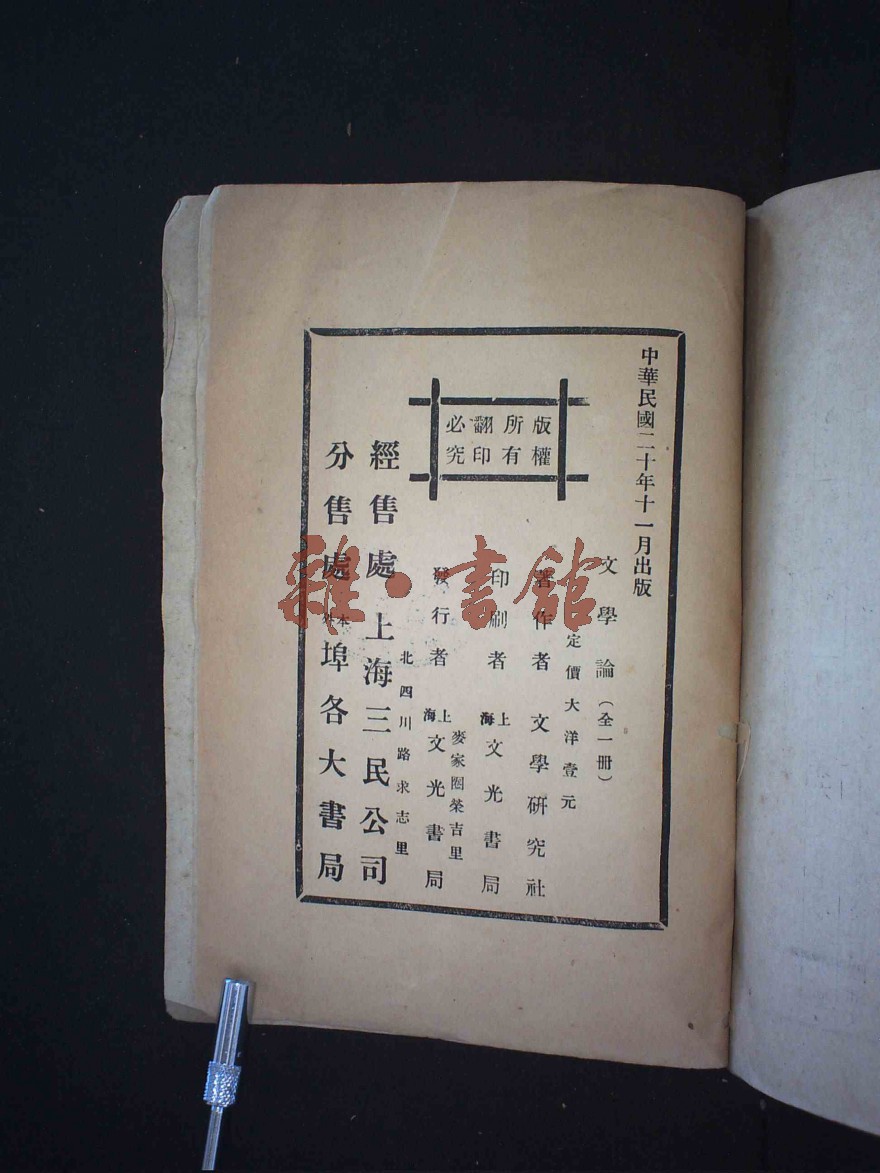 中華民國二十年十一月出版
文學論（全一冊）
定價大洋壹元
著作者 文學硏究社
印刷者 上海文光書局
麥家圏榮吉里
發行者 上海文光書局
版權所有
翻印必究
北四川路求志里
經售處 上海三民公司
分售處 本外埠各大書局
雜·書館